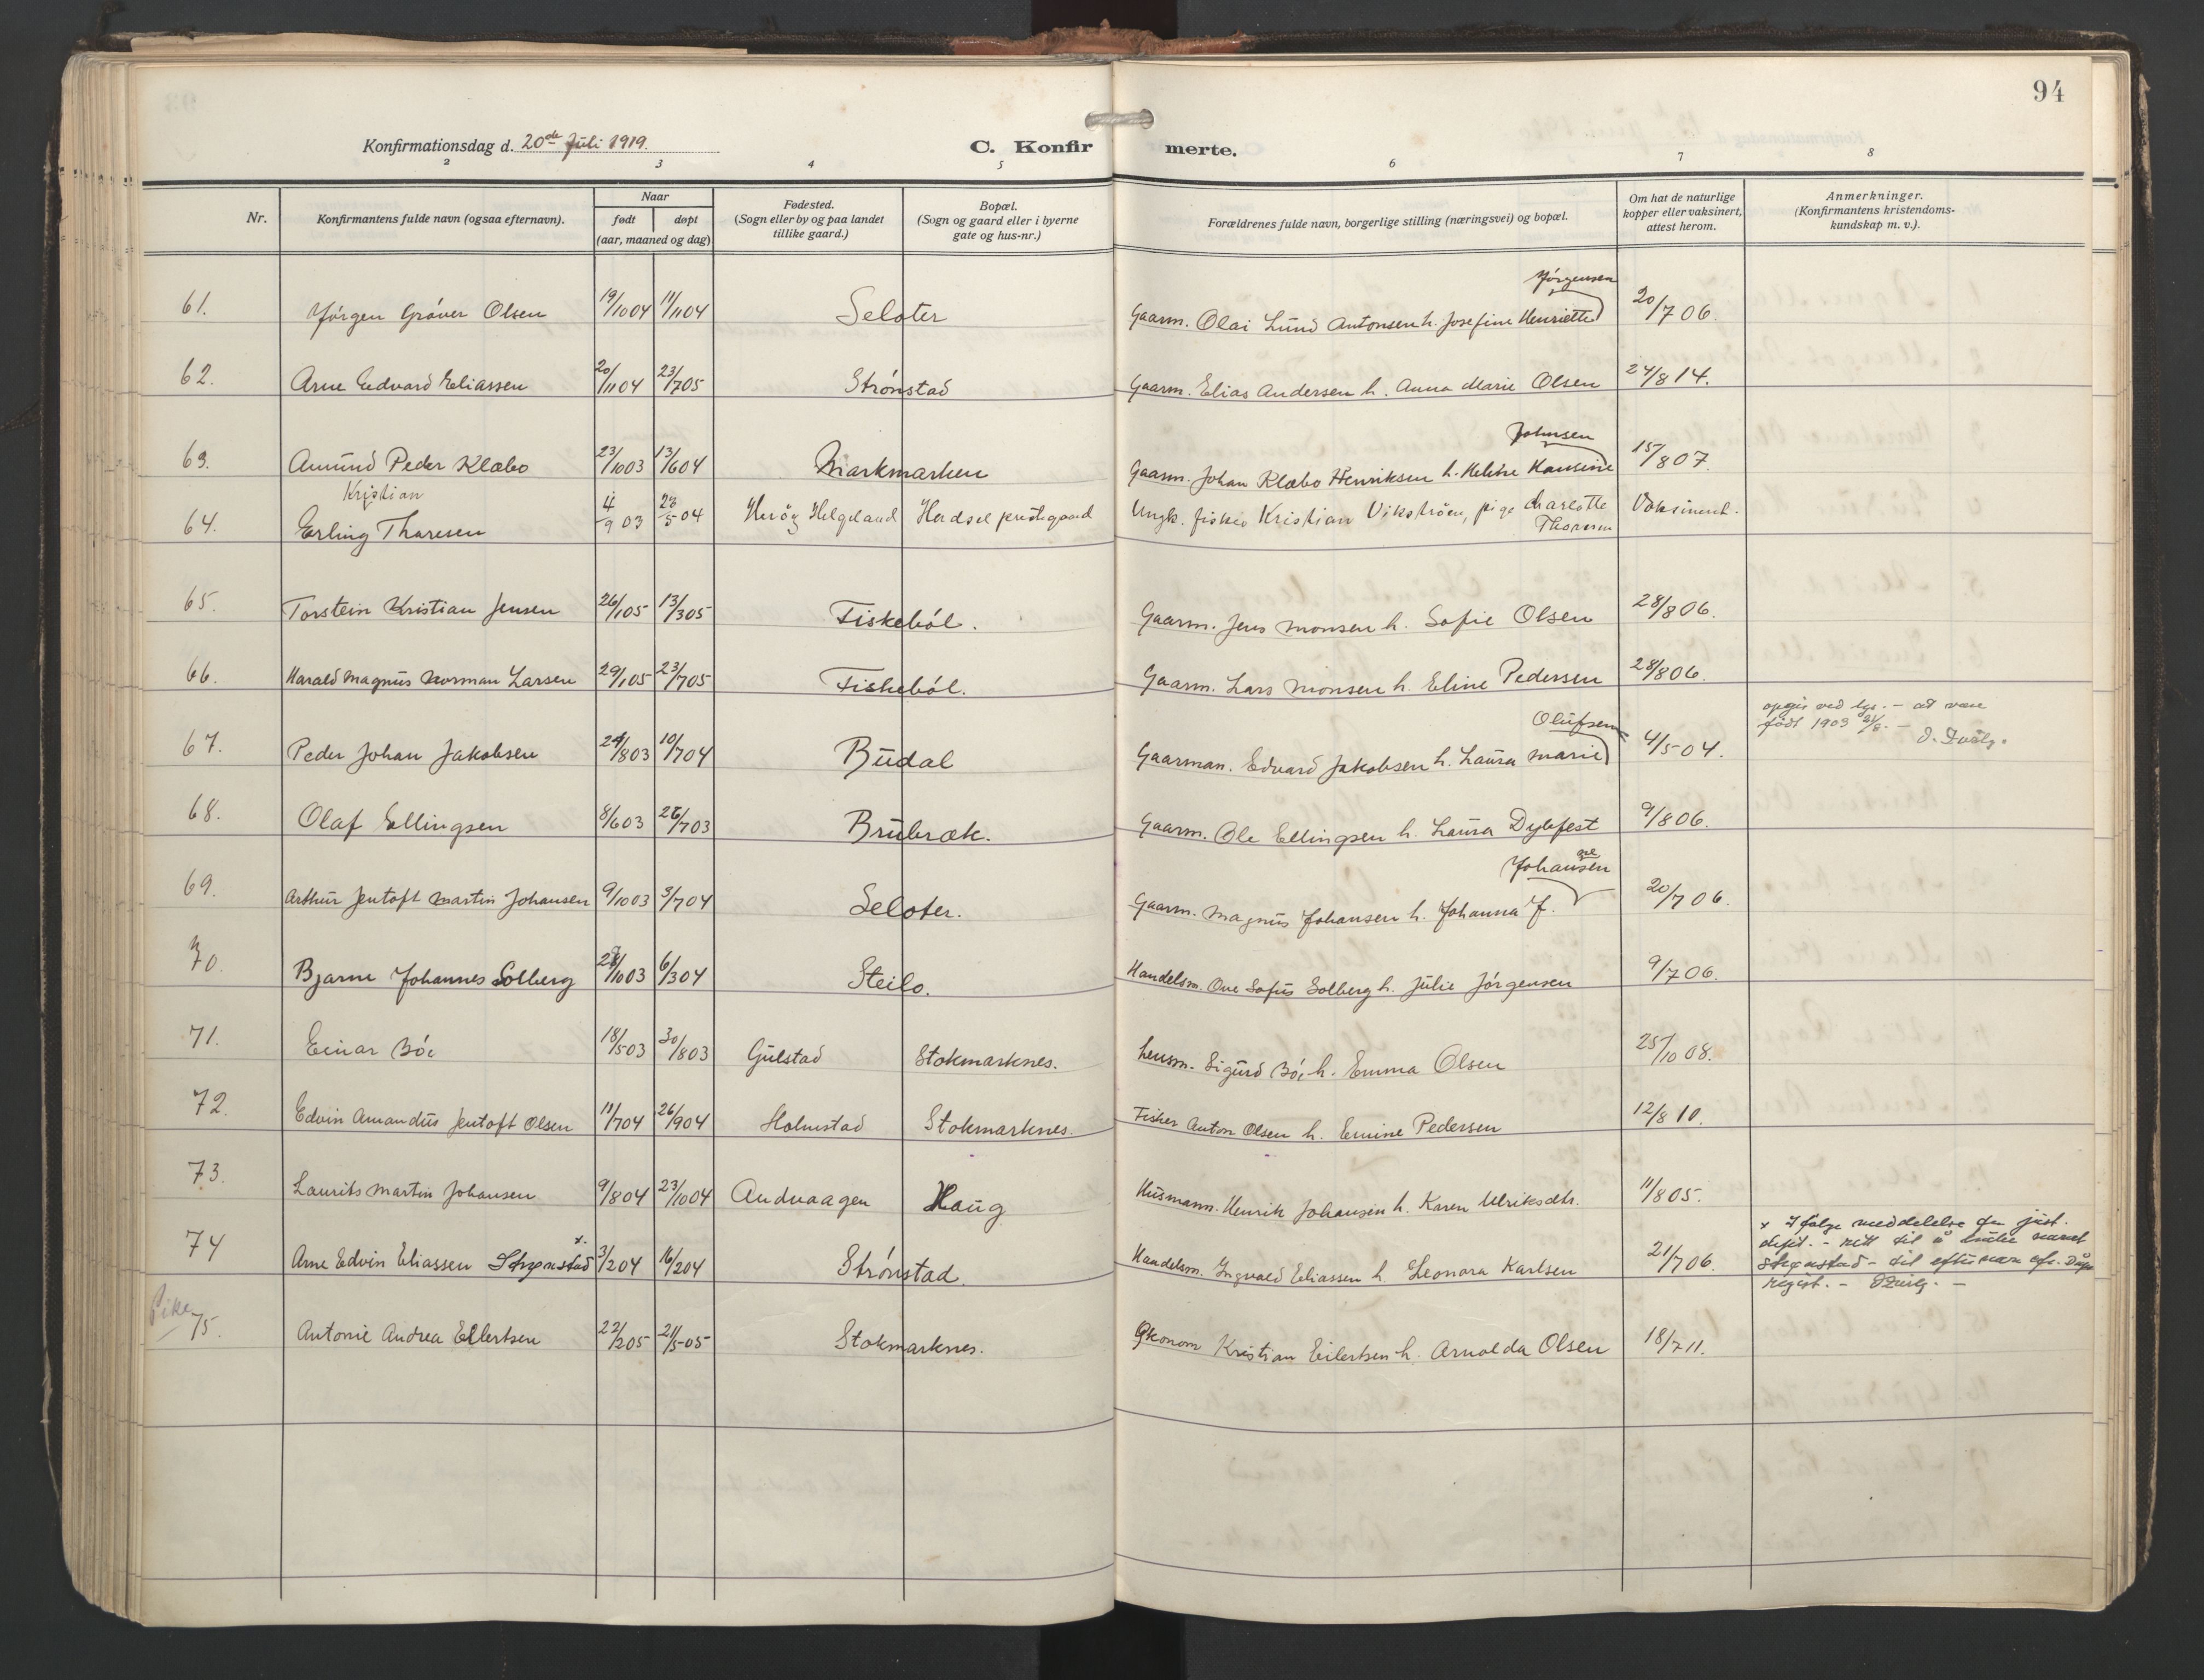 94
Konfirmationsdag d. 20de Juli 1919.
C. Konfirmerte.
2 3 4 5 6 7 8
Nr.
Konfirmantens fulde navn (ogsaa efternavn).
Naar
født døpt
(aar, maaned og dag)
Fødested.
(Sogn eller by og paa landet
tillike gaard.)
Bopæl.
(Sogn og gaard eller i byerne
gate og hus-nr.)
Forældrenes fulde navn, borgerlige stilling (næringsvei) og bopæl.
Om hat de naturlige
kopper eller vaksinert,
attest herom.
Anmerkninger.
(Konfirmantens kristendoms-
kundskap m. v.).
Jörgensen
61. Jörgen Gröver Olsen 19/10 04 11/11 04 Seloter Gaarm. Olai Lund Antonsen h. Josefine Henriette 20/7 06.
62. Arne Edvard Eliassen 20/11 04 23/7 05 Strönstad Gaarm. Elias Andersen h. Anna Marie Olsen 24/8 14.
Johnsen
63. Amund Peder Klæbo 23/10 03 13/6 04 Markmarken Gaarm. Johan Klæbo Henriksen h. Hansine 15/8 07.
Kristian
64. Erling Tharesen 4/9 03 23/5 04 Heröy Helgeland Hadsel prestegaard Ungk. fisker Kristian Vikströen, pige Charlotte Vaksinert.
Thoresen
65. Torstein Kristian Jensen 26/1 05 13/3 05 Fiskeböl. Gaarm. Jens Monsen h. Sofie Olsen 28/8 06.
66. Harald Magnus Norman Larsen 29/1 05 23/7 05 Fiskeböl. Gaarm. Lars Monsen h. Eline Pedersen 28/8 06.
Olufsen
opgis ved lys. - at være
født 1903 21/8. -
67. Peder Johan Jakobsen 24/8 03 10/7 04 Budal Gaarman. Edvard Jakobsen h. Laura Marie 4/5 04.
68. Olaf Ellingsen 8/6 03 26/7 03 Brubræk. Gaarm. Ole Ellingsen h. Laura Dybfest 9/8 06.
Johansen
69. Arthur Jentoft Martin Johansen 9/10 03 3/7 04 Seloter. Gaarm. Magnus Johansen h. Johanna J. 20/7 06.
70. Bjarne Johannes Solberg 28/10 03 6/3 04 Steilo. Handelsm. Ove Sofus Solberg h. Julie Jörgensen 9/7 06.
71. Einar Böe 18/5 03 30/8 03 Gulstad Stokmarknes. Lensm. Sigurd Böe h. Emma Olsen 25/10 08.
72. Edvin Amandus Jentoft Olsen 11/7 04 26/9 04 Holmstad Stokmarknes. Fisker Anton Olsen h. Emine Pedersen 12/8 10.
73. Laurits Martin Johansen 9/8 04 23/10 04 Andvaagen Haug Husmann. Henrik Johansen h. Karen Ulriksdtr. 11/8 05.
x Ifølge meddelelse fra just.
depit. - rett til å bruke navnet
74 Arne Edvin Eliassen Strønstad x. 3/2 04 16/2 04 Strönstad. Handelsm. Ingvald Eliassen h. Leonora Karlsen 21/7 06. Strønstad - til efternavn
regist. -
Pike
75. Antonie Andrea Eilertsen 22/2 05 21/5 05 Stokmarknes. Økonom Kristian Eilertsen h. Arnolda Olsen 18/7 11.